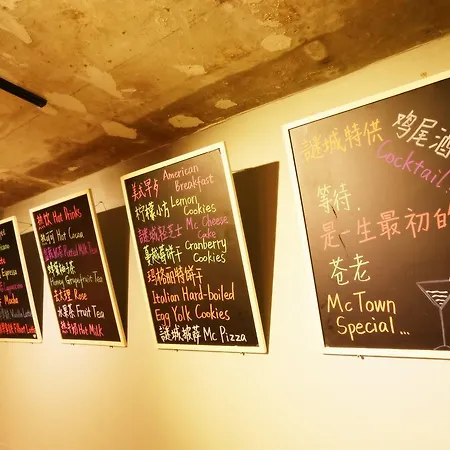 Mocha
热饮 Hot Drinks
热可可 Hot Cocoa
Pearl Milk Tea
Honey Grapefruit Tea
Rose
水果茶 Fruit Tea
热牛奶 Hot Milk
美式早夕 American
Breakfast
柠檬小方 Lemon
Cookies
謎城轻芝士 Mc Cheese
Cake
蔓越莓饼干 Cranberry
Cookies
玛格丽特饼干
Italian Hard-boiled
Egg Yolk Cookies
謎城披萨 Mc Pizza
謎城特供 鸡尾酒
Cocktail
等待,
是一生最初的
苍老
McTown
Special...